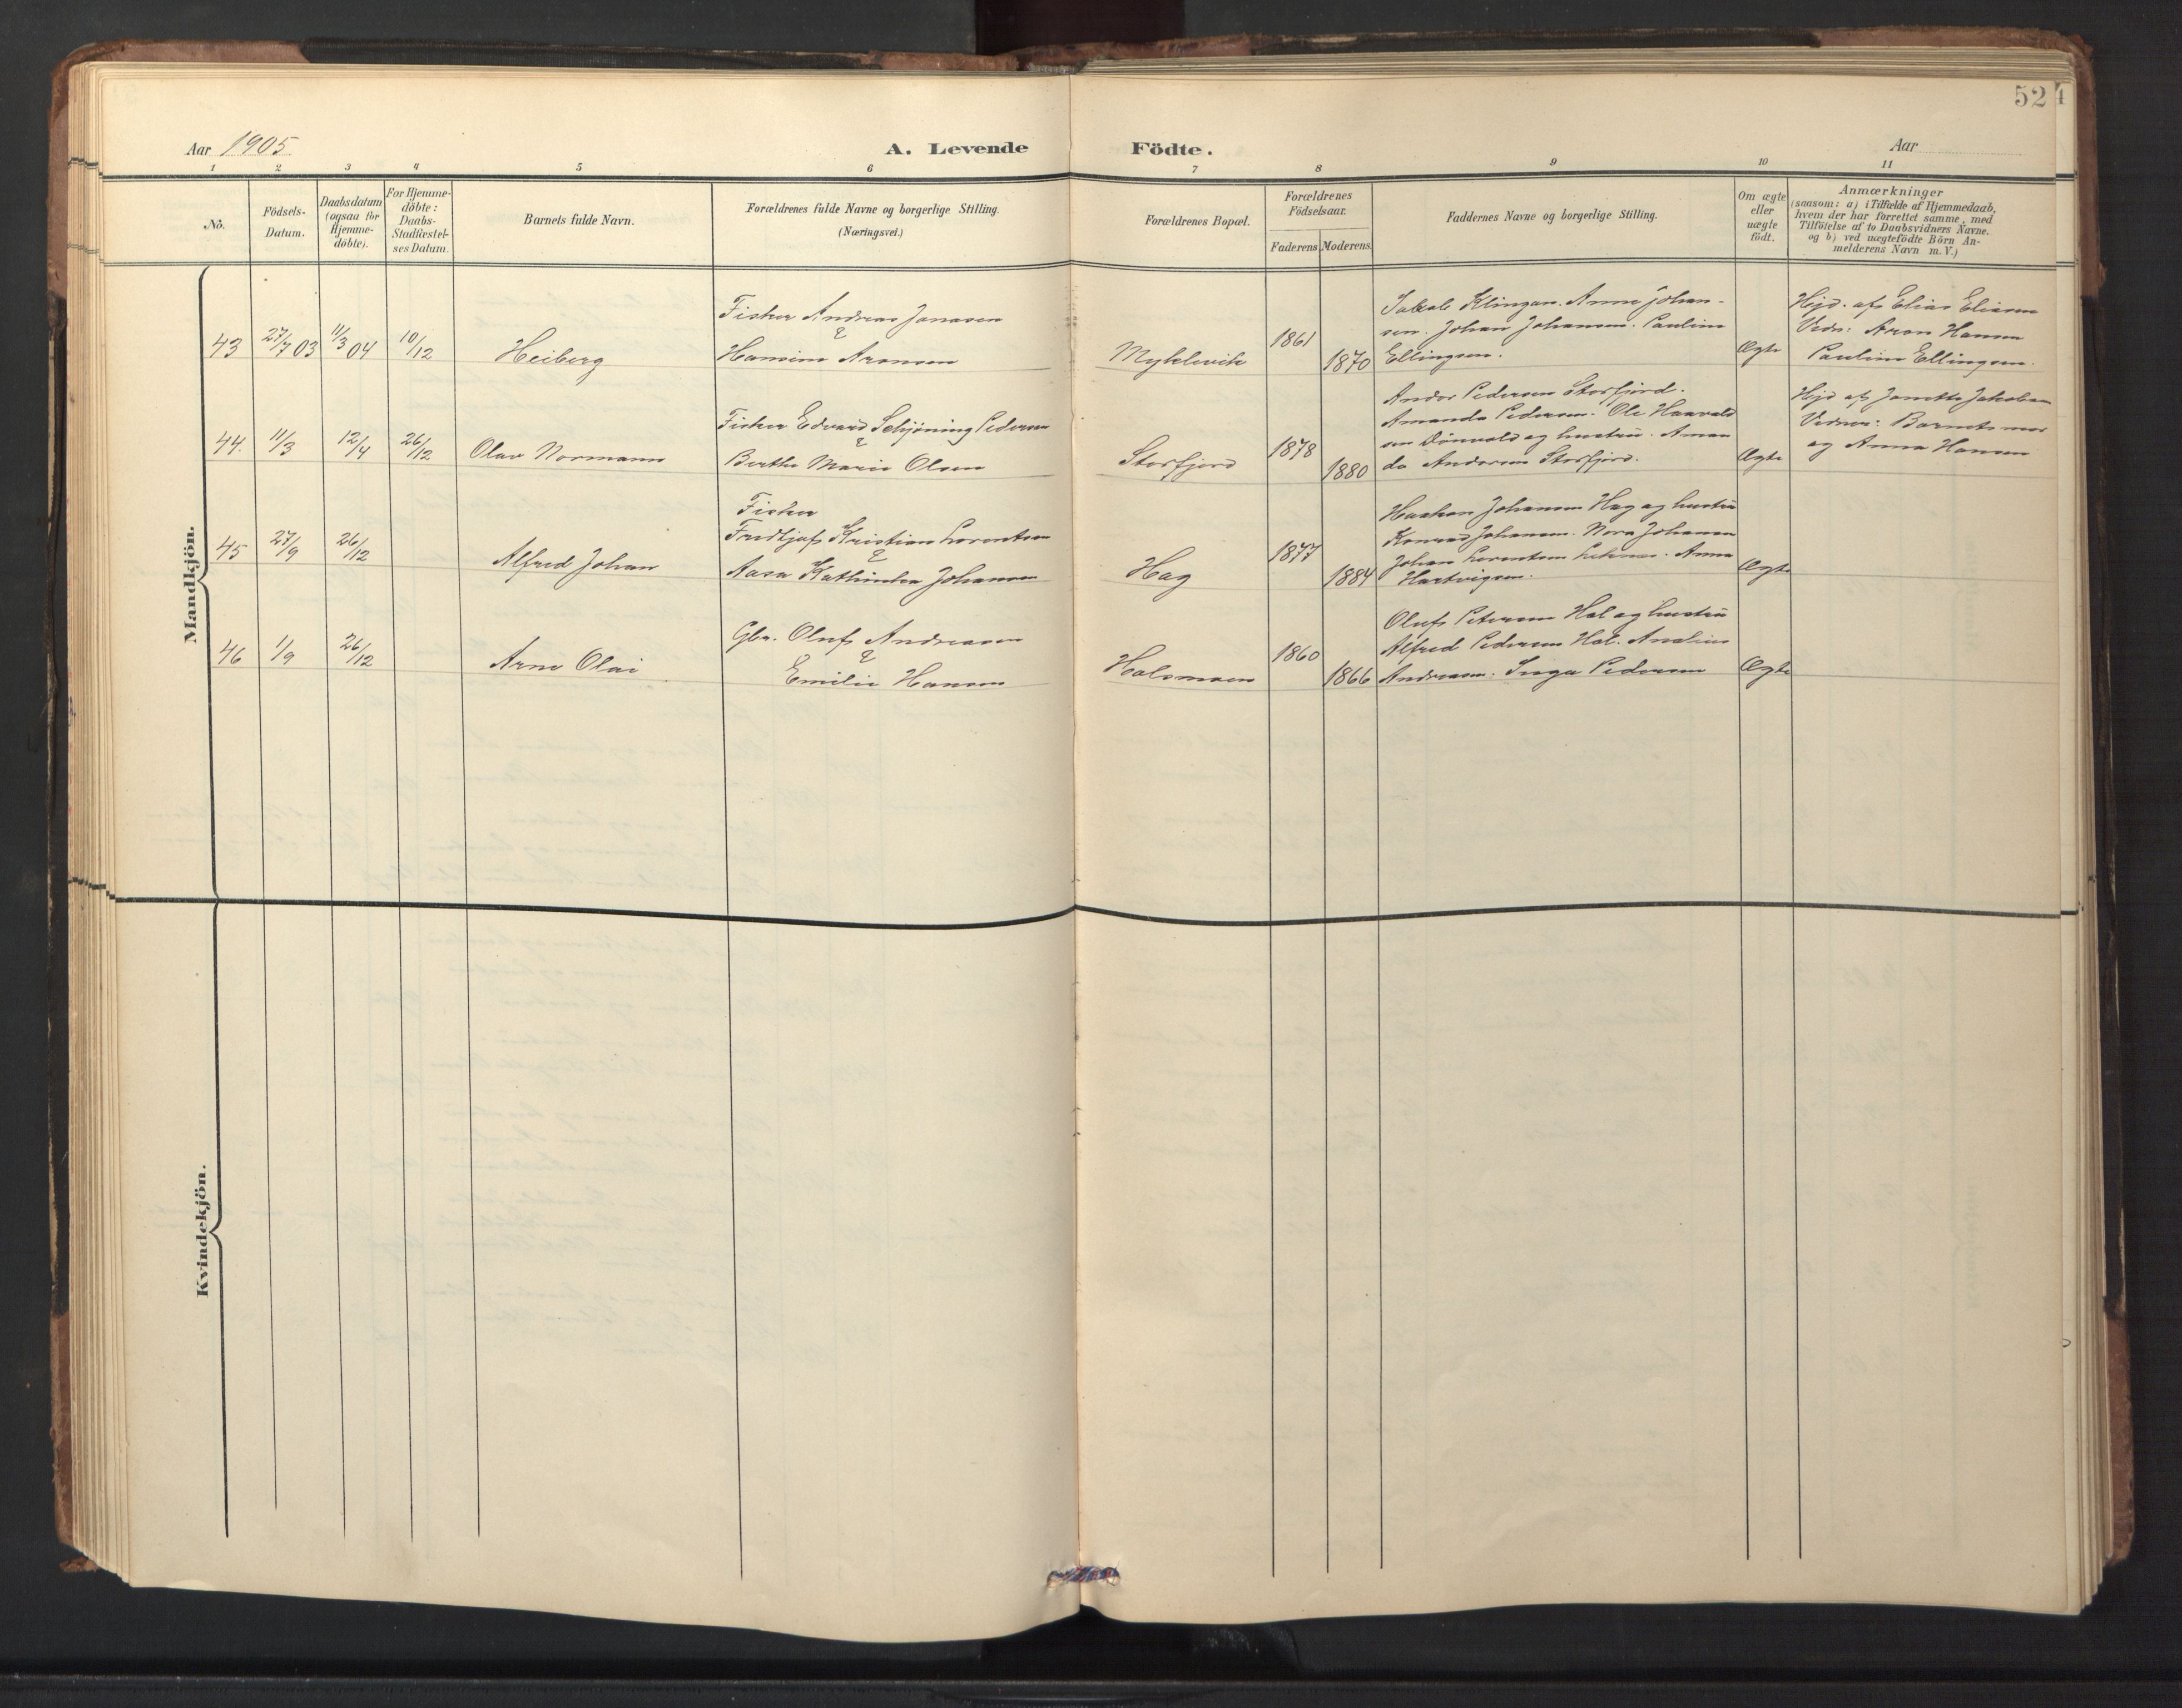 52
Aar 1905
A. Levende Födte.
Aar
1 2 3 4 5 6 7 8 9 10 11
No.
Födsels-
Datum.
Daabsdatum
(ogsaa for
Hjemme-
döbte).
For Hjemme-
döbte:
Daabs-
Stadfæstel-
ses Datum.
Barnets fulde Navn.
Forældrenes fulde Navne og borgerlige Stilling.
(Næringsvei.)
Forældrenes Bopæl.
Forældrenes
Födselsaar.
Faderens Moderens
Faddernes Navne og borgerlige Stilling.
Om ægte
eller
uægte
födt.
Anmærkninger
(saasom: a) i Tilfælde af Hjemmedaab,
hvem der har forrettet samme, med
Tilföielse af to Daabsvidners Navne.
og b) ved uægtefödte Börn An-
melderens Navn m.V.)
Mandkjön.
43 27/7 03 11/3 04 10/12 Heiberg
Fisker Andreas Jonasen
&
Hansine Aronsen
Myklevik
1861
1870
Jakob Klingan. Anne Johan-
sen. Johan Johansen. Pauline
Ellingsen.
Ægte
Hjd. af Elias Eliasen
Vidn: Aron Hansen
Pauline Ellingsen.
44. 11/3 12/4 26/12 Olav Normann
Fisker Edvard Schjöning Pedersen
&
Berthe Marie Olsen
Storfjord
1878
1880
Andor Pedersen Storfjord.
Amanda Pedersen. Ole Haavald
sen Dönvold og hustru. Aman
da Andersen Storfjord.
Ægte
Hjd af Janetta Jakobsen
Vidner: Barnets mor
og Anna Hansen
45 27/9 26/12 Alfred Johan
Fisker
Fridtjof Kristian Lorentsen
&
Aasa Kathinka Johansen
Hag
1877
1884
Haakon Johansen Hag og hustru
Konrad Johansen. Nora Johansen
Johan Lorentsen Leknes. Anna
Hartvigsen.
Ægte
46 1/9 26/12 Arne Olai
Gbr. Oluf Andreasen
&
Emilie Hansen
Halsmoen
1860
1866
Oluf Petersen Hal og hustru
Alfred Pedersen Hal. Analius
Andreasen. Inga Pedersen
Ægte
Kvindekjön.